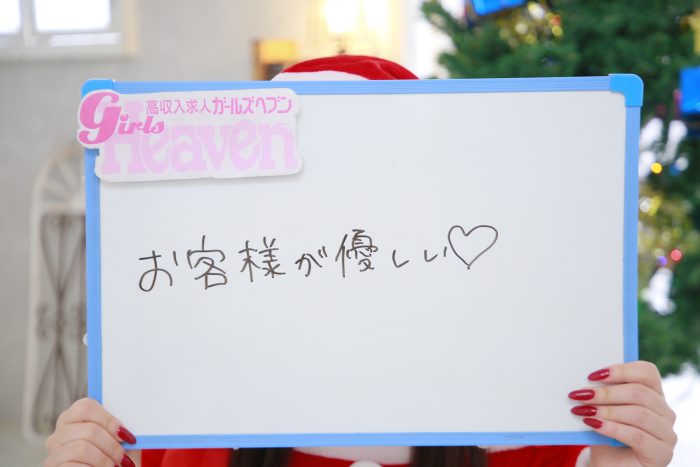 高収入求人ガールズヘブン
Girls
Heaven
お客様が優しい♡